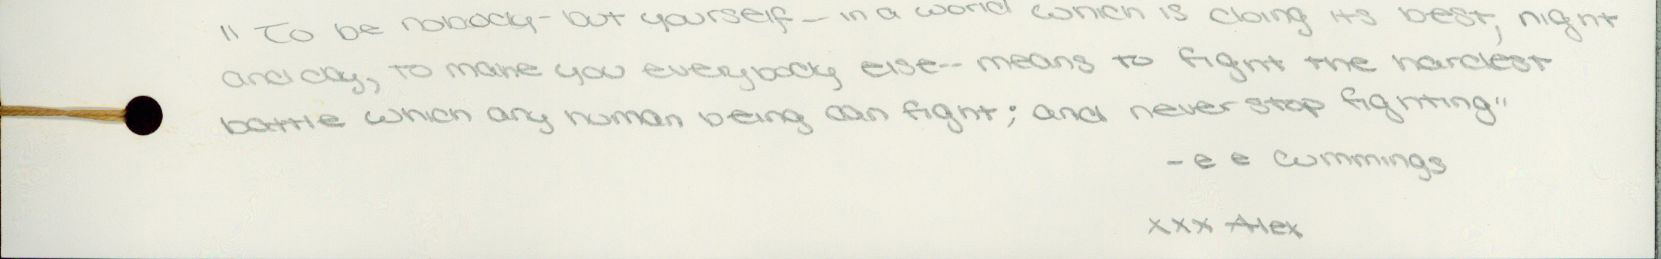 "To be nobody-but yourself - in a world which is doing its best, night
and day, to make you everybody else-- means to fight the hardest
battle which any human being can fight; and never stop fighting"
- e e cummings
xxx Alex